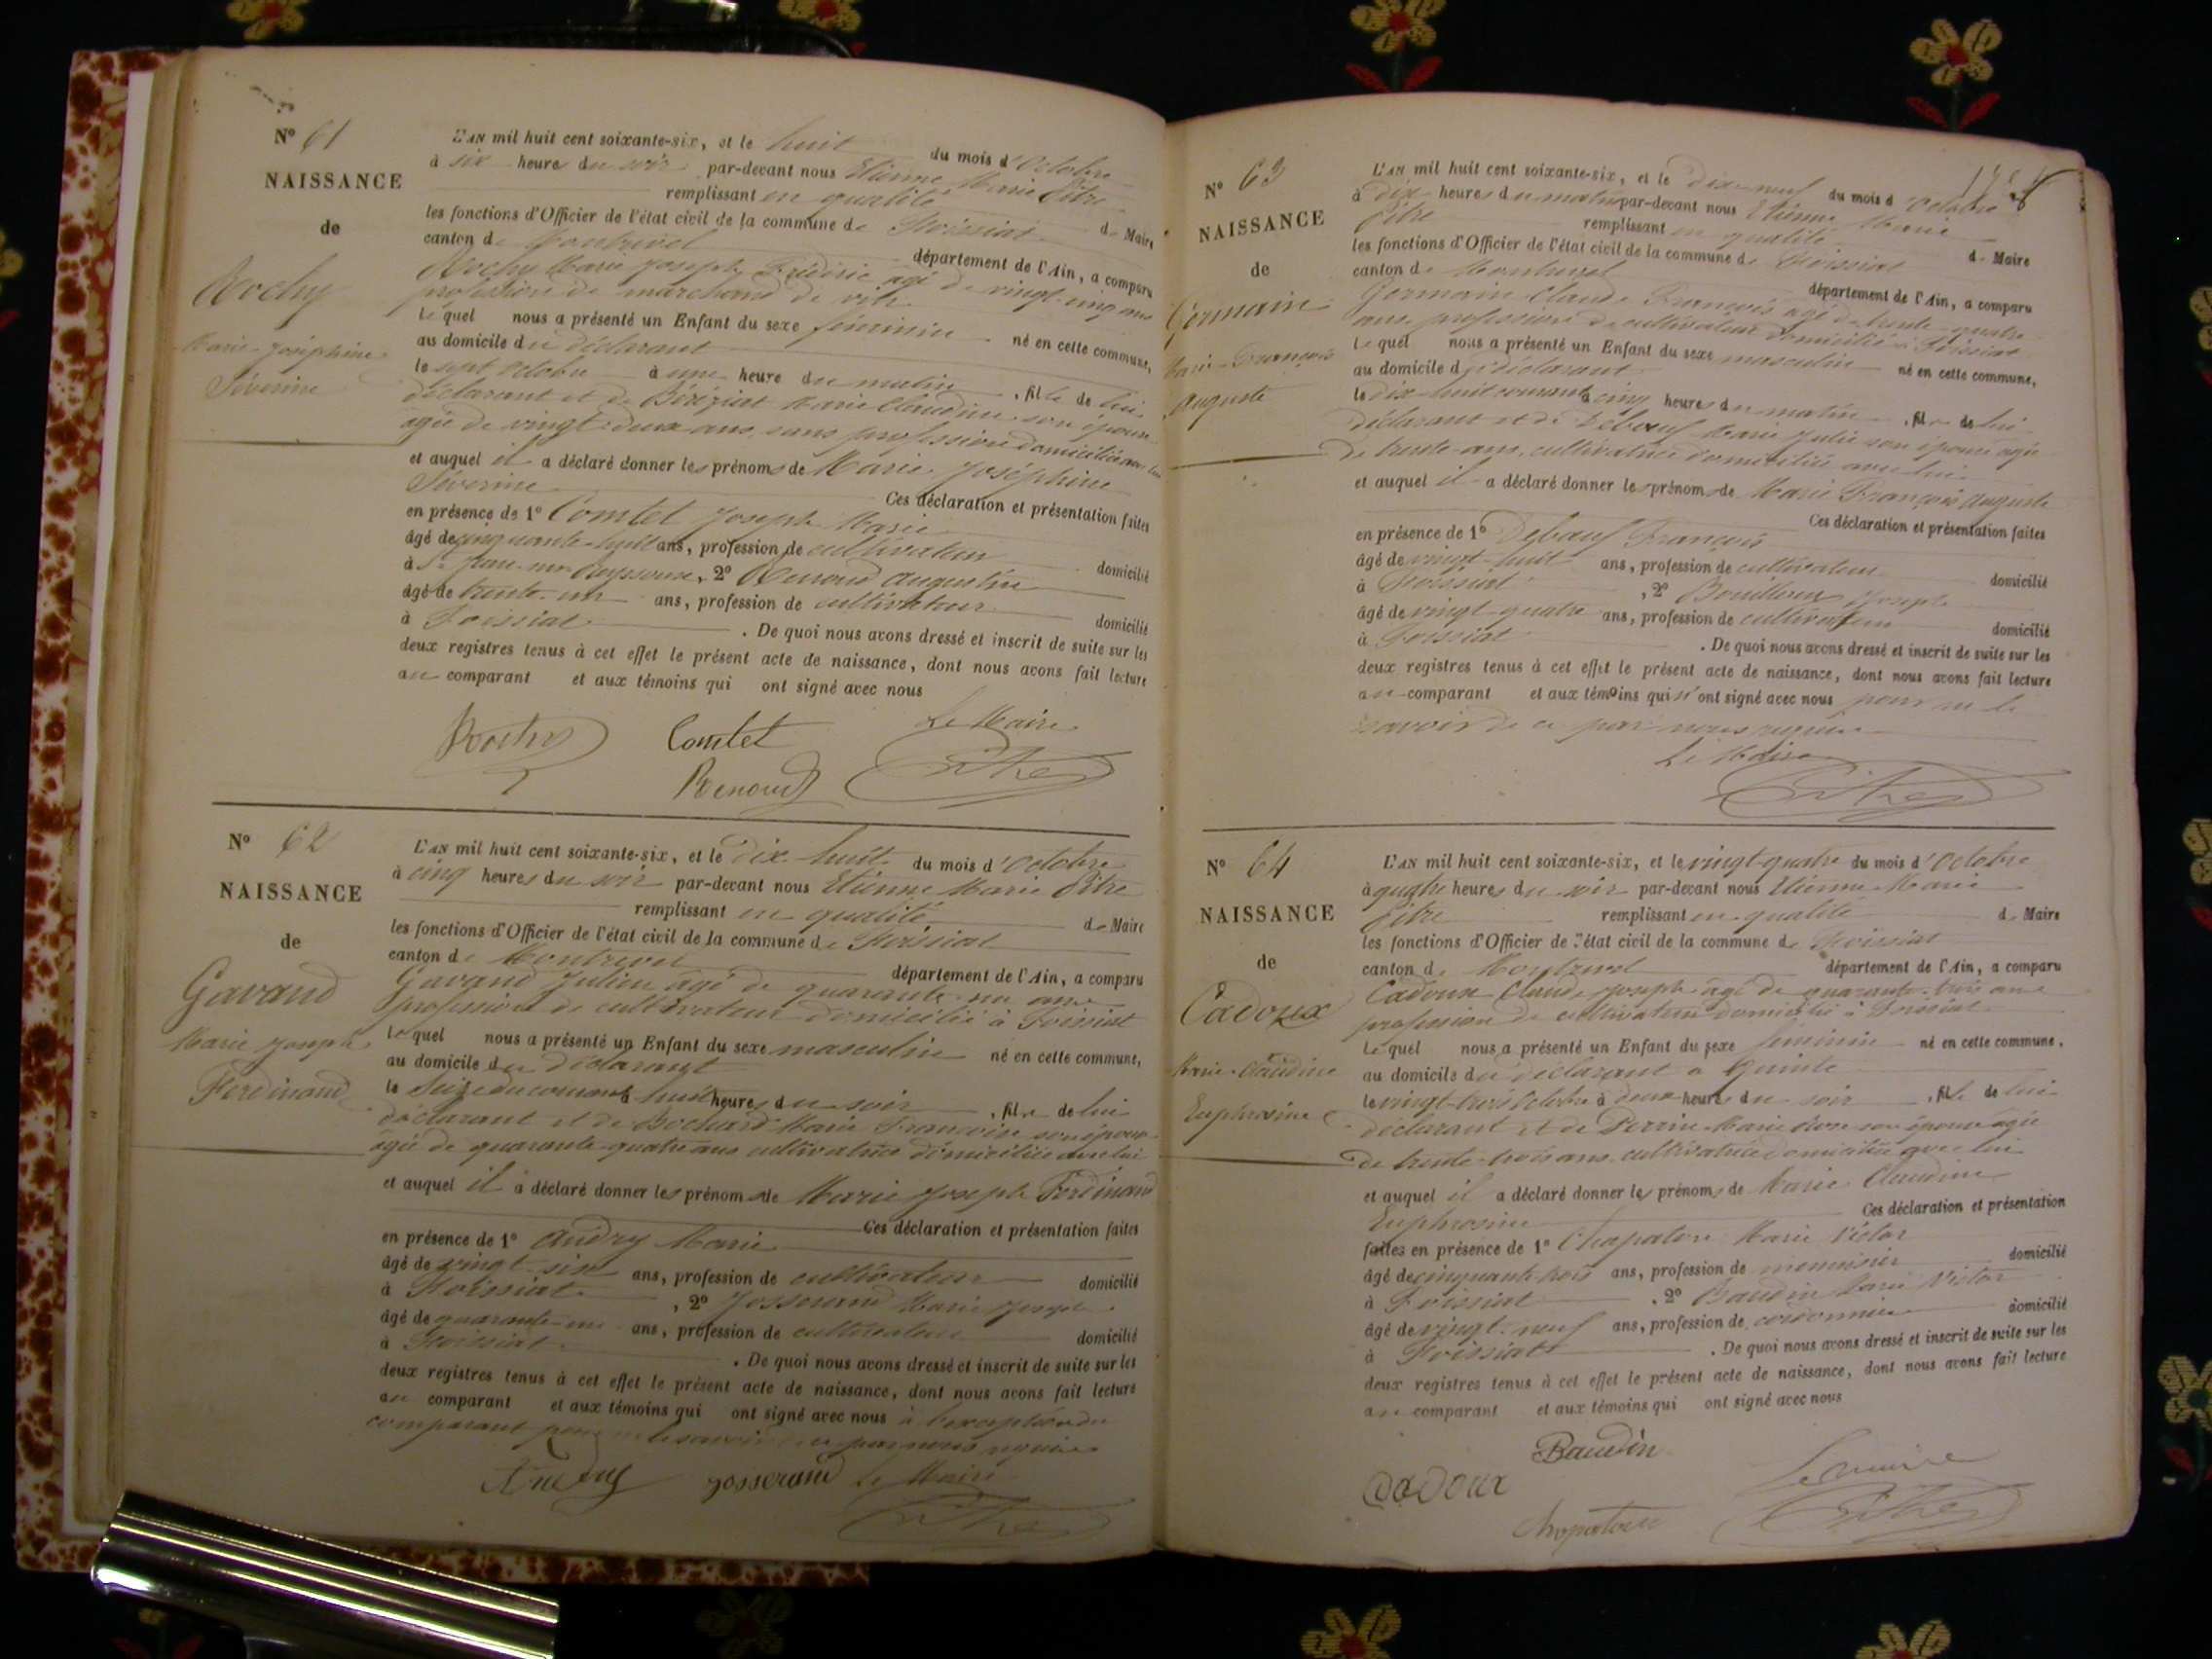 N° 61
NAISSANCE
de
Rochy
Marie-Joséphine
Séverine
L'AN mil huit cent soixante-six, et le huit du mois d'Octobre
à six heures du soir par-devant nous Etienne Marie Pitre
remplissant en qualité de Maire
les fonctions d'Officier de l'état civil de la commune de Foissiat
canton de Montrevel département de l'Ain, a comparu
Rochy Marie Joseph Frédéric âgé de vingt-cinq ans
profession de marchand de vin
Lequel nous a présenté un Enfant du sexe féminin né en cette commune,
au domicile du déclarant
le sept Octobre à une heure du matin, fille de lui
déclarant et de Béréziat Marie Claudine son épouse
âgée de vingt-deux ans, sans profession domiciliée avec lui
et auquel il a déclaré donner les prénoms de Marie Joséphine
Séverine Ces déclaration et présentation faites
en présence de 1° Comtet Joseph Marie
âgé de cinquante-huit ans, profession de cultivateur domicilié
à St Jean-sur-Reyssouze, 2° Renoud Augustin
âgé de trente-un ans, profession de cultivateur domicilié
à Foissiat. De quoi nous avons dressé et inscrit de suite sur les
deux registres tenus à cet effet le présent acte de naissance, dont nous avons fait lecture
au comparant et aux témoins qui ont signé avec nous
Le Maire
Rochy Comtet Pitre
Renoud
N° 62
NAISSANCE
de
Gavand
Marie Joseph
Ferdinand
L'AN mil huit cent soixante-six, et le dix-huit du mois d'Octobre
à cinq heures du soir par-devant nous Etienne Marie Pitre
remplissant en qualité de Maire
les fonctions d'Officier de l'état civil de la commune de Foissiat
canton de Montrevel département de l'Ain, a comparu
Gavand Julien âgé de quarante-un ans
profession de cultivateur domicilié à Foissiat
Lequel nous a présenté un Enfant du sexe masculin né en cette commune,
au domicile du déclarant
le seize du courant à huit heures du soir, fils de lui
déclarant et de Bochard Marie Françoise son épouse
âgée de quarante-quatre ans cultivatrice domiciliée avec lui
et auquel il a déclaré donner les prénoms de Marie Joseph Ferdinand
Ces déclaration et présentation faites
en présence de 1° Audry Marie
âgé de vingt-six ans, profession de cultivateur domicilié
à Foissiat, 2° Josserand Marie Joseph
âgé de quarante-un ans, profession de cultivateur domicilié
à Foissiat. De quoi nous avons dressé et inscrit de suite sur les
deux registres tenus à cet effet le présent acte de naissance, dont nous avons fait lecture
au comparant et aux témoins qui ont signé avec nous à l'exception du
comparant pour ne le savoir de ce par nous requis
Audry Josserand Le Maire
Pitre
N° 63
NAISSANCE
de
Germain
Marie-François
Auguste
L'AN mil huit cent soixante-six, et le dix-neuf du mois d'Octobre
à dix heures du matin par-devant nous Etienne Marie
Pitre remplissant en qualité de Maire
les fonctions d'Officier de l'état civil de la commune de Foissiat
canton de Montrevel département de l'Ain, a comparu
Germain Claude François âgé de trente-quatre
ans, profession de cultivateur domicilié à Foissiat
Lequel nous a présenté un Enfant du sexe masculin né en cette commune,
au domicile du déclarant
le dix-huit courant à cinq heures du matin, fils de lui
déclarant et de Debeuf Marie Julie son épouse âgée
de trente-ans, cultivatrice domiciliée avec lui
et auquel il a déclaré donner les prénoms de Marie François Auguste
Ces déclaration et présentation faites
en présence de 1° Debeuf François
âgé de vingt-huit ans, profession de cultivateur domicilié
à Foissiat, 2° Bouilloux Joseph
âgé de vingt-quatre ans, profession de cultivateur domicilié
à Foissiat. De quoi nous avons dressé et inscrit de suite sur les
deux registres tenus à cet effet le présent acte de naissance, dont nous avons fait lecture
au comparant et aux témoins qui n'ont signé avec nous pour ne le
savoir de ce par nous requis
Le Maire
Pitre
N° 64
NAISSANCE
de
Cadoux
Marie-Claudine
Euphrosine
L'AN mil huit cent soixante-six, et le vingt-quatre du mois d'Octobre
à quatre heures du soir par-devant nous Etienne Marie
Pitre remplissant en qualité de Maire
les fonctions d'Officier de l'état civil de la commune de Foissiat
canton de Montrevel département de l'Ain, a comparu
Cadoux Claude Joseph âgé de quarante-trois ans
profession de cultivateur domicilié à Foissiat
Lequel nous a présenté un Enfant du sexe féminin né en cette commune,
au domicile du déclarant a Quinte
le vingt-trois Octobre à deux heures du soir, fille de lui
déclarant et de Perrin Marie Rose son épouse âgée
de trente-trois ans cultivatrice domiciliée avec lui
et auquel il a déclaré donner les prénoms de Marie Claudine
Euphrosine Ces déclaration et présentation
faites en présence de 1° Chapaton Marie Victor
âgé de cinquante-trois ans, profession de menuisier domicilié
à Foissiat, 2° Baudin Marie Victor
âgé de vingt-neuf ans, profession de cordonnier domicilié
à Foissiat. De quoi nous avons dressé et inscrit de suite sur les
deux registres tenus à cet effet le présent acte de naissance, dont nous avons fait lecture
au comparant et aux témoins qui ont signé avec nous
Baudin
Cadoux Le maire
Chapaton Pitre